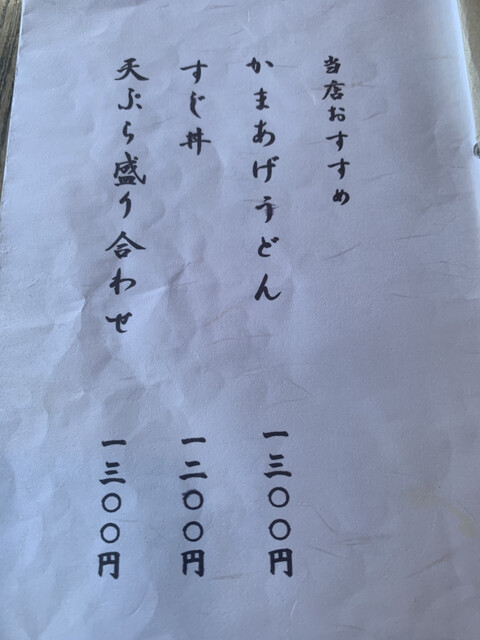 当店おすすめ
かまあげうどん 一三〇〇円
すじ丼 一二〇〇円
天ぷら盛り合わせ 一三〇〇円